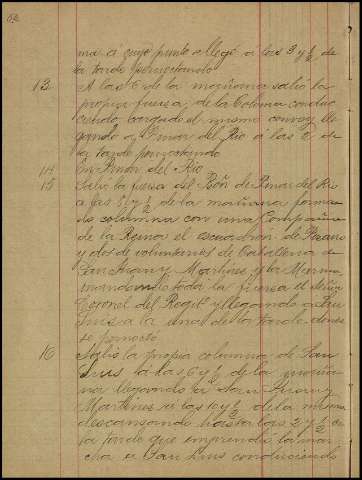 ma a cuyo punto llegó a las 3 y ½ de
la tarde pernoctando
13 A las 6 de la mañana salió la
propia fuerza, de la Coloma condu
ciendo cargado el mismo convoy lle
gando a Pinar del Rio a las 2 de
la tarde pernoctando
14 En Pinar del Rio
15 Salió la fuerza del Bón de Pinar del Rio
a las 8 y ½ de la mañana forman
do columna con una Compañia
de la Reina el escuadrón de Pizarro
y dos de voluntarios de Caballeria de
San Juan y Martines y la
mandando toda la fuerza el Señor
Coronel del Regto y llegando a San
Luis a la una de la tarde donde
se pernoctó
16 Salió la propia columna de San
Luis a las 6 y ½ de la maña
na llegando a San Juan y
Martines a las 10 y ½ de la misma
descansando hasta las 2 y ½ de
la tarde que emprendió la mar
cha a San Luis conduciendo